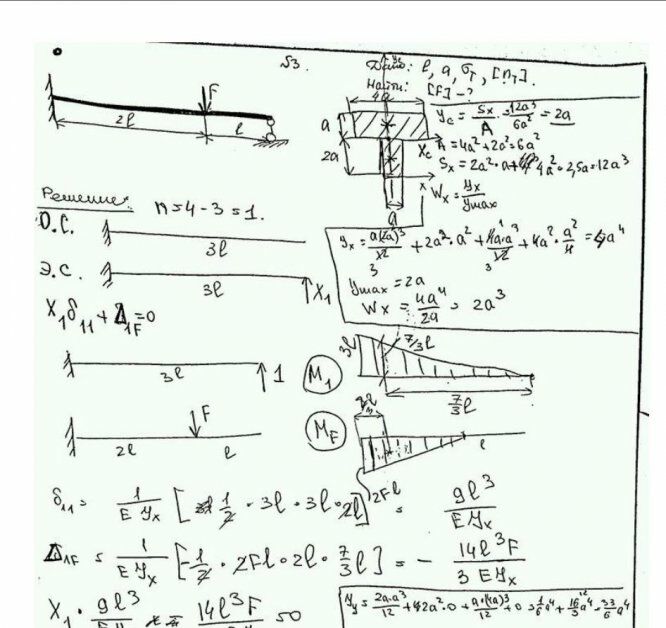 №3.
Дано: l, a, σт, [nт].
Найти: [F] - ?
F
2l
l
4a
a
2a
a
y
Xc
x
Yc = Sx / A = 12a³ / 6a² = 2a
A = 4a² + 2a² = 6a²
Sx = 2a²·a + 4a²·2,5a = 12a³
Wx = Yx / Ymax
Решение n = 4 - 3 = 1.
О.С.
3l
Э.С.
3l
X1
Yx = a(2a)³ / 12 + 2a²·a² + 4a·a³ / 12 + 4a²·a² / 4 = 4a⁴
3
1
3
Ymax = 2a
Wx = 4a⁴ / 2a = 2a³
X1 δ11 + Δ1F = 0
3l
1
M1
3l
7/3 l
7/3 l
F
2l
l
MF
2Fl
l
δ11 = 1 / EYx [1/2 · 3l · 3l · 2l] = 9l³ / EYx
Δ1F = 1 / EYx [-1/2 · 2Fl · 2l · 7/3 l] = - 14l³F / 3EYx
X1 · 9l³ / 14l³F = 0
Yy = 2a·a³ / 12 + 2a²·0 + a·(4a)³ / 12 + 0 = 1/6 a⁴ + 16/3 a⁴ = 33/6 a⁴